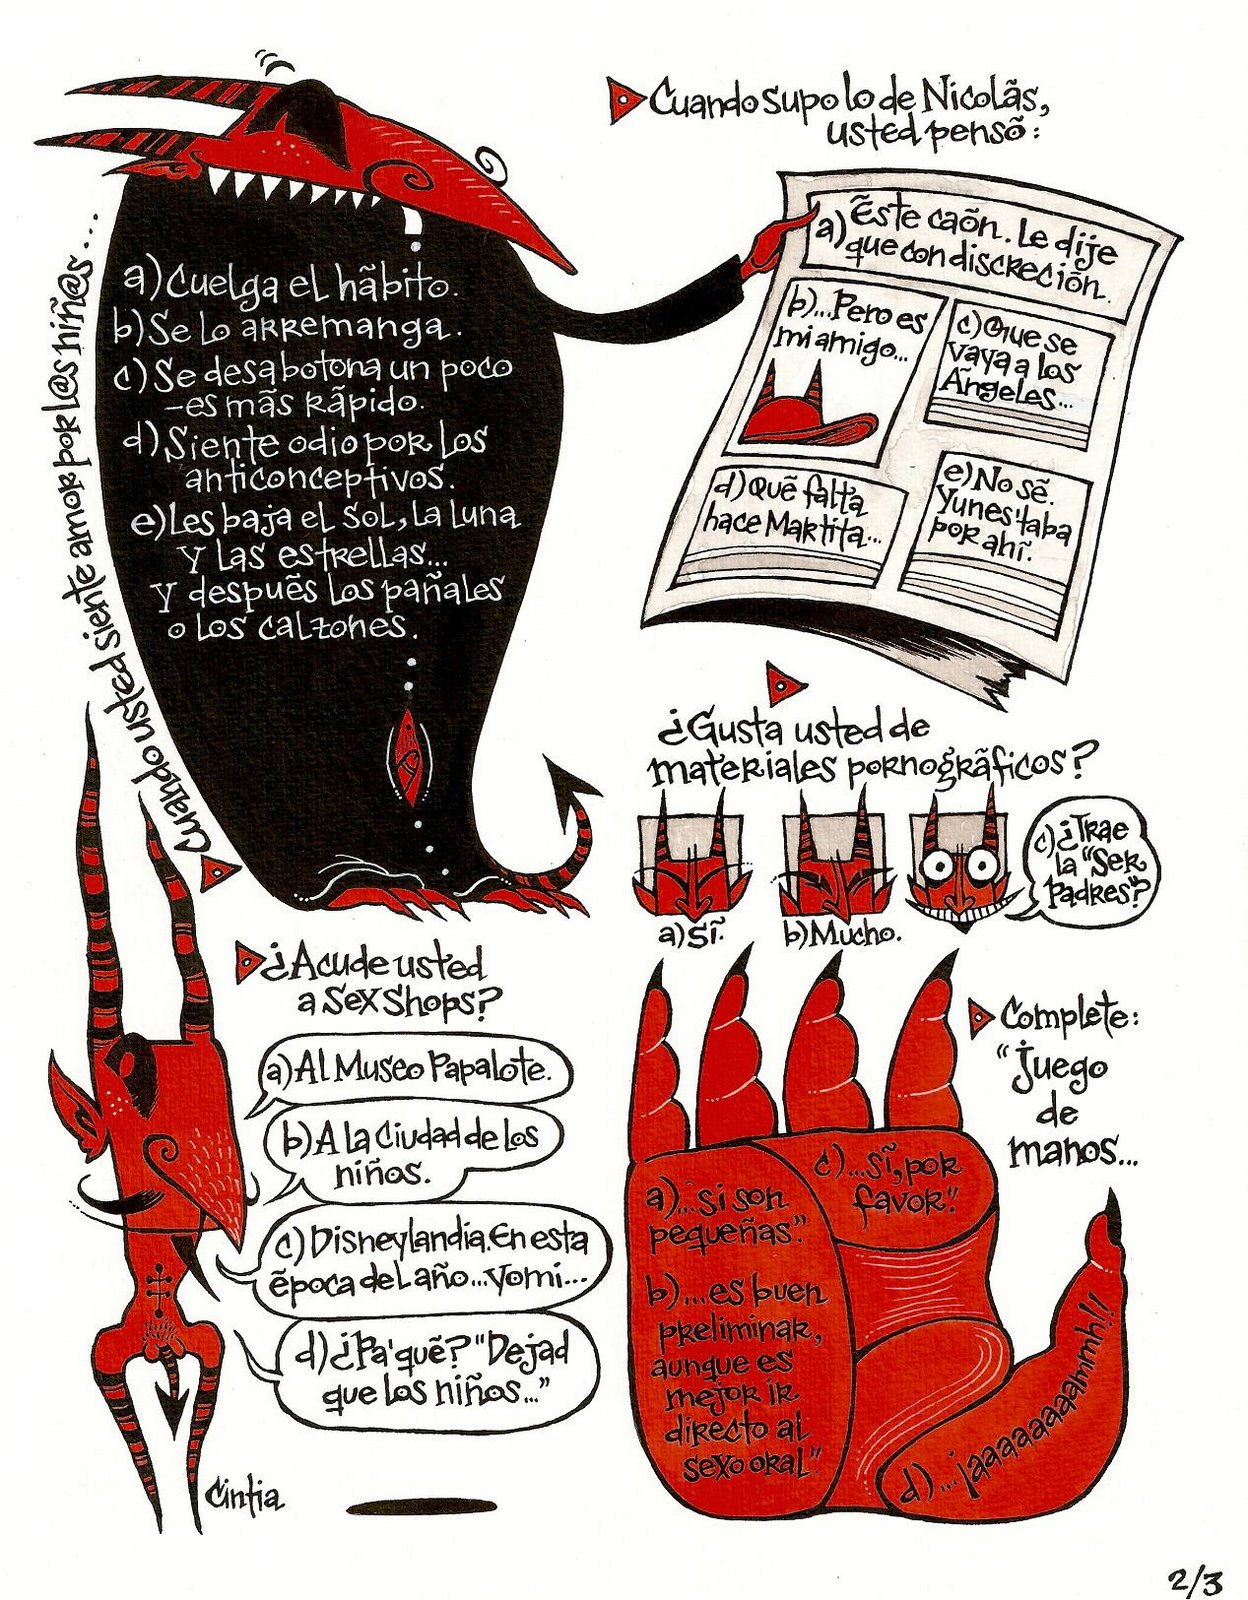 Cuando usted siente amor por l@s niñ@s...
a) Cuelga el hábito.
b) Se lo arremanga.
c) Se desabotona un poco
-es más rápido.
d) Siente odio por los
anticonceptivos.
e) Les baja el sol, la luna
y las estrellas...
y después los pañales
o los calzones.
Cuando supo lo de Nicolás,
usted pensó:
a) Éste caón. Le dije
que con discreción.
b) ...Pero es
mi amigo...
c) Que se
vaya a los
Ángeles...
d) Qué falta
hace Martita...
e) No sé.
Yunes'taba
por ahí.
¿Gusta usted de
materiales pornográficos?
a) Sí.
b) Mucho.
c) ¿Trae
la "Ser
Padres"?
¿Acude usted
a Sex Shops?
a) Al Museo Papalote.
b) A la Ciudad de los
niños.
c) Disneylandia. En esta
época del año... yomi...
d) ¿Pa'qué? "Dejad
que los niños..."
Cintia
Complete:
"Juego
de
manos...
a) ...si son
pequeñas."
b) ...es buen
preliminar,
aunque es
mejor ir
directo al
sexo oral."
c) ...sí, por
favor."
d) ...¡aaaaaaaahmmh!!
2/3